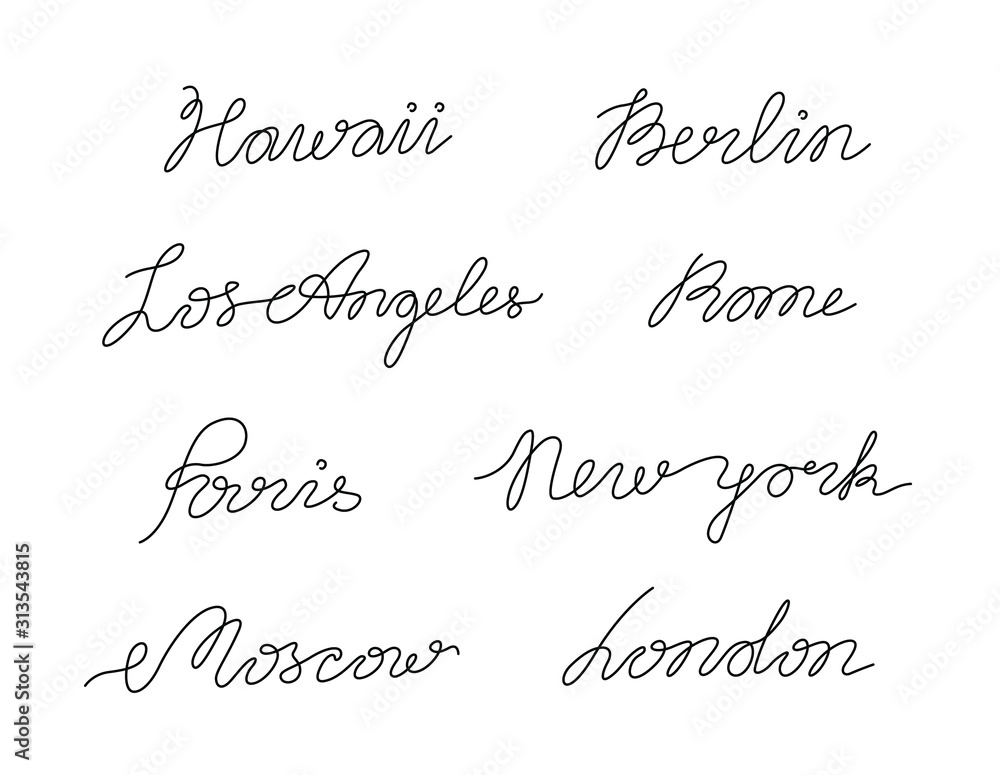 Hawaii Berlin
Los Angeles Rome
Paris New York
Moscow London
Adobe Stock | #313543815